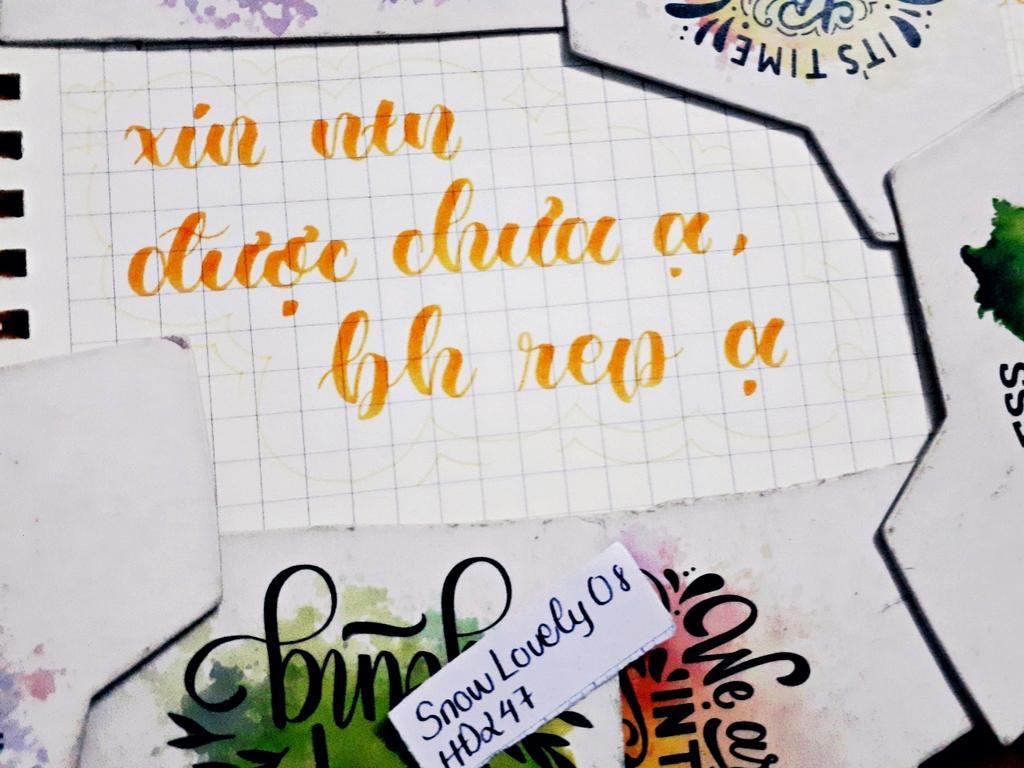 IT'S TIME
xỉn ntn
được chưa ạ,
bh rep ạ
bình
SnowLovely08
HD247
We are
INT
SS